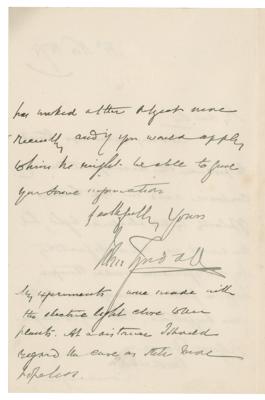 has worked at the object more
recently and if you would apply
to him he might be able to give
you some information
faithfully Yours
John Tyndall
My experiments were made with
the electric light close to the
plants. At a distance I should
regard the case as
hopeless.